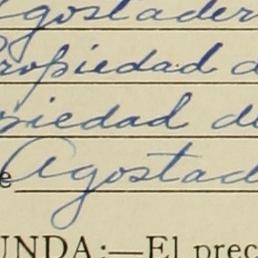 Agostader
Propiedad d
piedad de
e Agostad
UNDA:—El prec